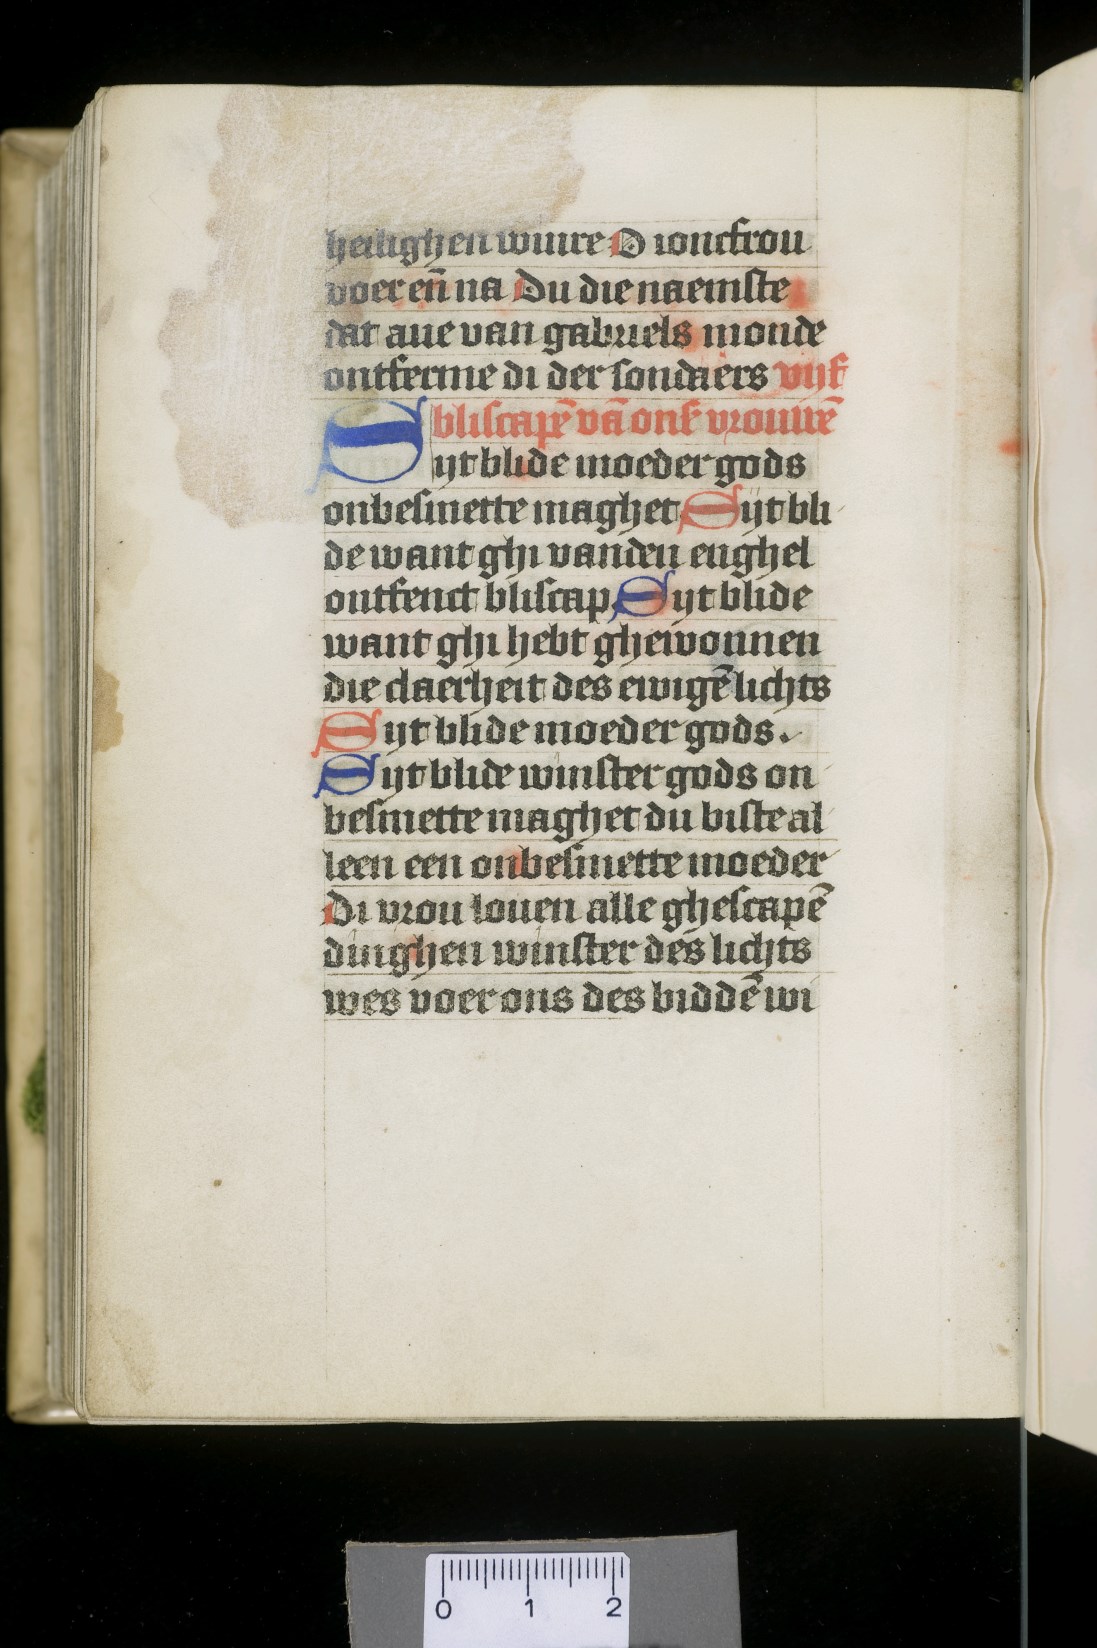 heilighen winre O ioncfrou
voer en̄ na Du die naemste
dat aue van gabriels monde
ontferme di der sondaers vijf
bliscapē vā onse vrouwē
Sijt blide moeder gods
onbesmette maghet Sijt bli
de want ghi vanden enghel
ontfenct bliscap Sijt blide
want ghi hebt ghewonnen
die claerheit des ewigē lichts
Sijt blide moeder gods.
Sijt blide winster gods on
besmette maghet du biste al
leen een onbesmette moeder
Di vrou louen alle ghescapē
dinghen winster des lichts
wes voer ons des biddē wi
0 1 2